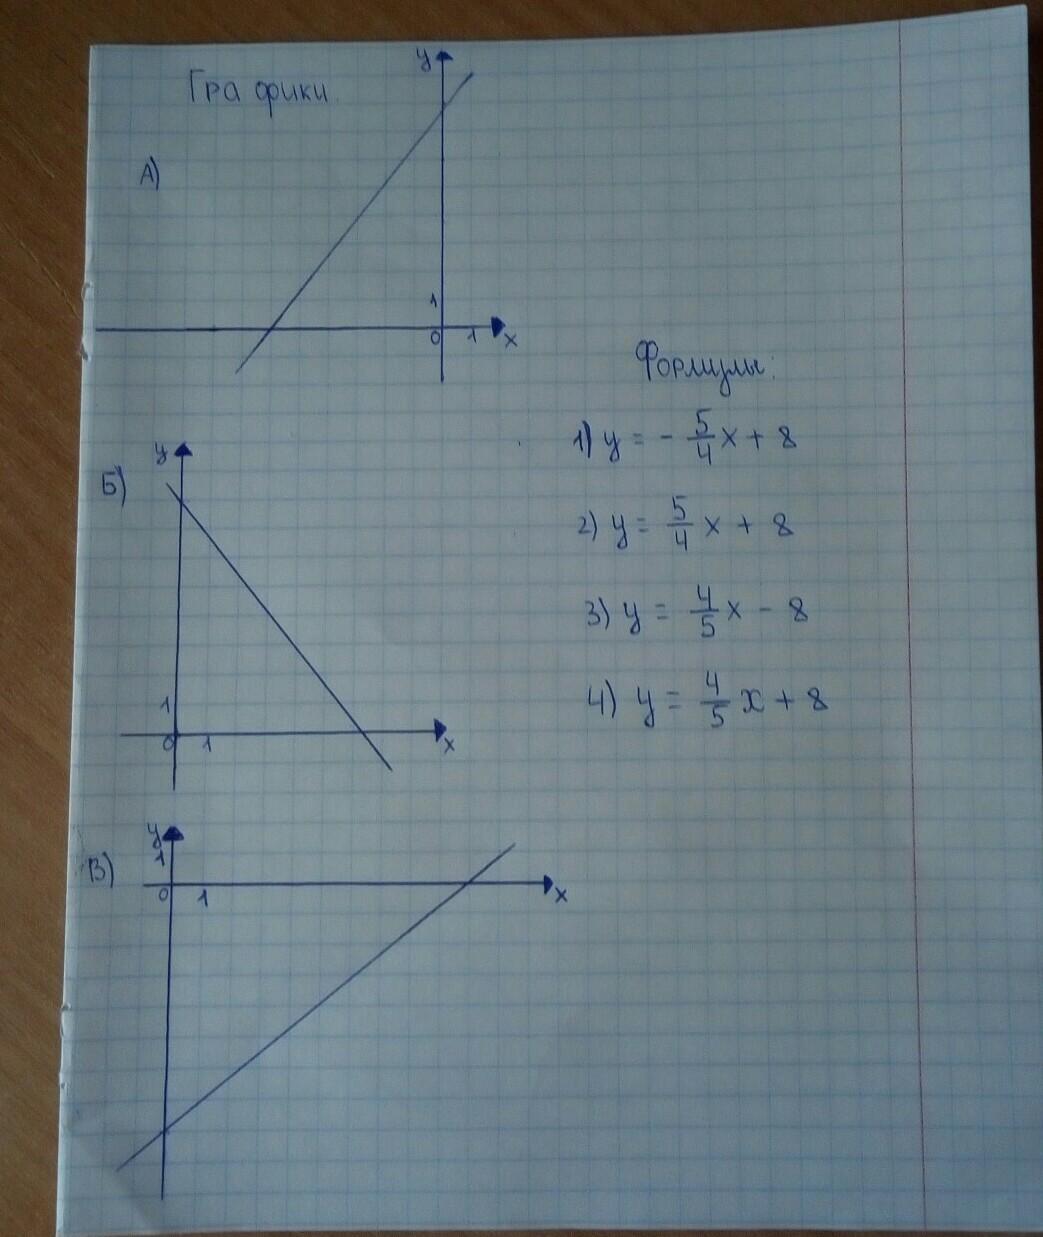 Графики.
А)
y
1
0
1
x
Формулы:
1) y = - 5/4 x + 8
2) y = 5/4 x + 8
3) y = 4/5 x - 8
4) y = 4/5 x + 8
Б)
y
1
0
1
x
В)
y
1
0
1
x